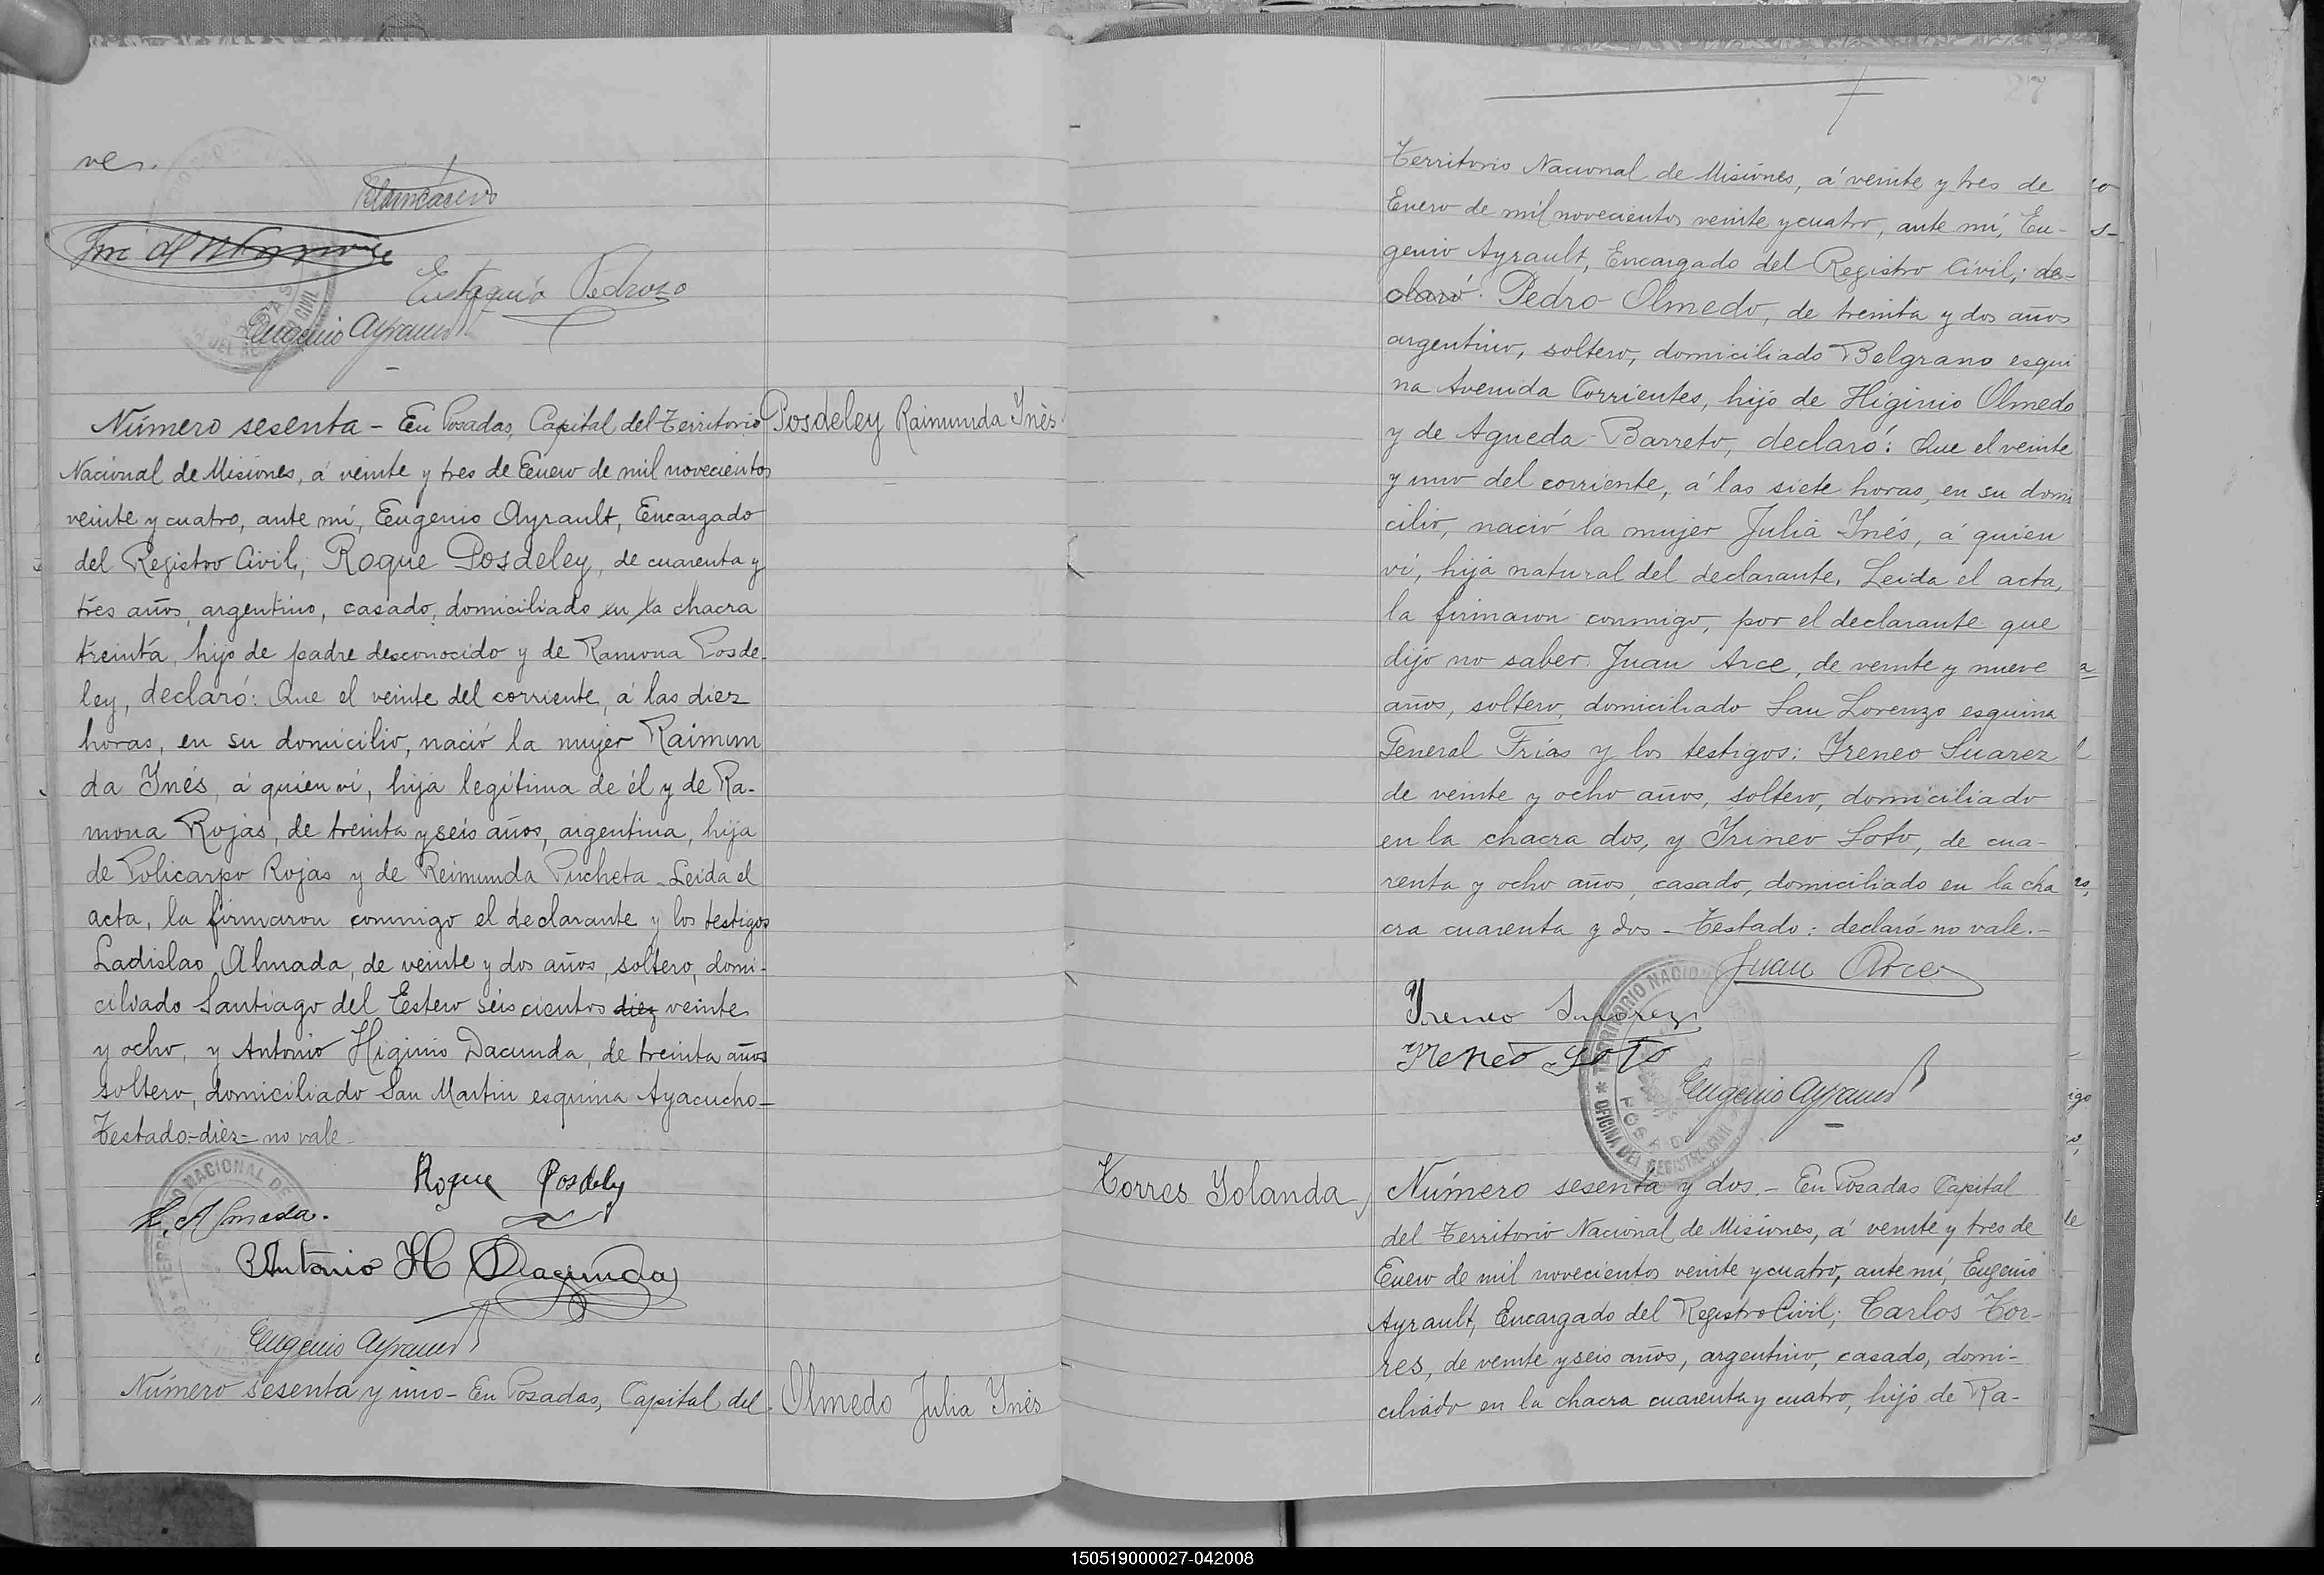 ves.
Eustaquio Pedrozo
Eugenio Ayrault
Número sesenta - En Posadas, Capital del Territorio
Posdeley Raimunda Inés.
Nacional de Misiones, á veinte y tres de Enero de mil novecientos
veinte y cuatro, ante mí, Eugenio Ayrault, Encargado
del Registro Civil; Roque Posdeley, de cuarenta y
tres años, argentino, casado, domiciliado en la chacra
treinta, hijo de padre desconocido y de Ramona Posde-
ley, declaró: Que el veinte del corriente, á las diez
horas, en su domicilio, nació la mujer Raimun
da Inés, á quien ví, hija legítima de él y de Ra-
mona Rojas, de treinta y seis años, argentina, hija
de Policarpo Rojas y de Reimunda Pucheta - Leida el
acta, la firmaron conmigo el declarante y los testigos
Ladislao Almada, de veinte y dos años, soltero, domi-
ciliado Santiago del Estero seis cientos diez veinte
y ocho, y Antonio Higinio Dacunda, de treinta años
soltero, domiciliado San Martin esquina Ayacucho-
Testado:-diez- no vale-
Roque Posdely
L. Almada.
Antonio H Dacunda
Eugenio Ayrault
Número sesenta y uno - En Posadas, Capital del
Olmedo Julia Inés
27
Territorio Nacional de Misiones, á veinte y tres de
Enero de mil novecientos veinte y cuatro, ante mí, Eu-
genio Ayrault, Encargado del Registro Civil; de-
claró: Pedro Olmedo, de treinta y dos años
argentino, soltero, domiciliado Belgrano esqui
na Avenida Corrientes, hijo de Higinio Olmedo
y de Agueda Barreto, declaró: Que el veinte
y uno del corriente, á las siete horas, en su domi
cilio, nació la mujer Julia Inés, á quien
ví, hija natural del declarante. Leida el acta,
la firmaron conmigo, por el declarante que
dijo no saber Juan Arce, de veinte y nueve
años, soltero, domiciliado San Lorenzo esquina
General Frías y los testigos: Ireneo Suarez
de veinte y ocho años, soltero, domiciliado
en la chacra dos, y Irineo Soto, de cua-
renta y ocho años, casado, domiciliado en la cha
cra cuarenta y dos - Testado: declaró-no vale.-
Juan Arce
Ireneo Suarez
Ireneo Soto
TERRITORIO NACIONAL
* OFICINA DEL REGISTRO CIVIL
POSADAS
Eugenio Ayrault
Torres Yolanda
Número sesenta y dos.- En Posadas Capital
del Territorio Nacional de Misiones, á veinte y tres de
Enero de mil novecientos veinte y cuatro, ante mí, Eugenio
Ayrault, Encargado del Registro Civil; Carlos Tor-
res, de veinte y seis años, argentino, casado, domi-
ciliado en la chacra cuarenta y cuatro, hijo de Ra-
150519000027-042008